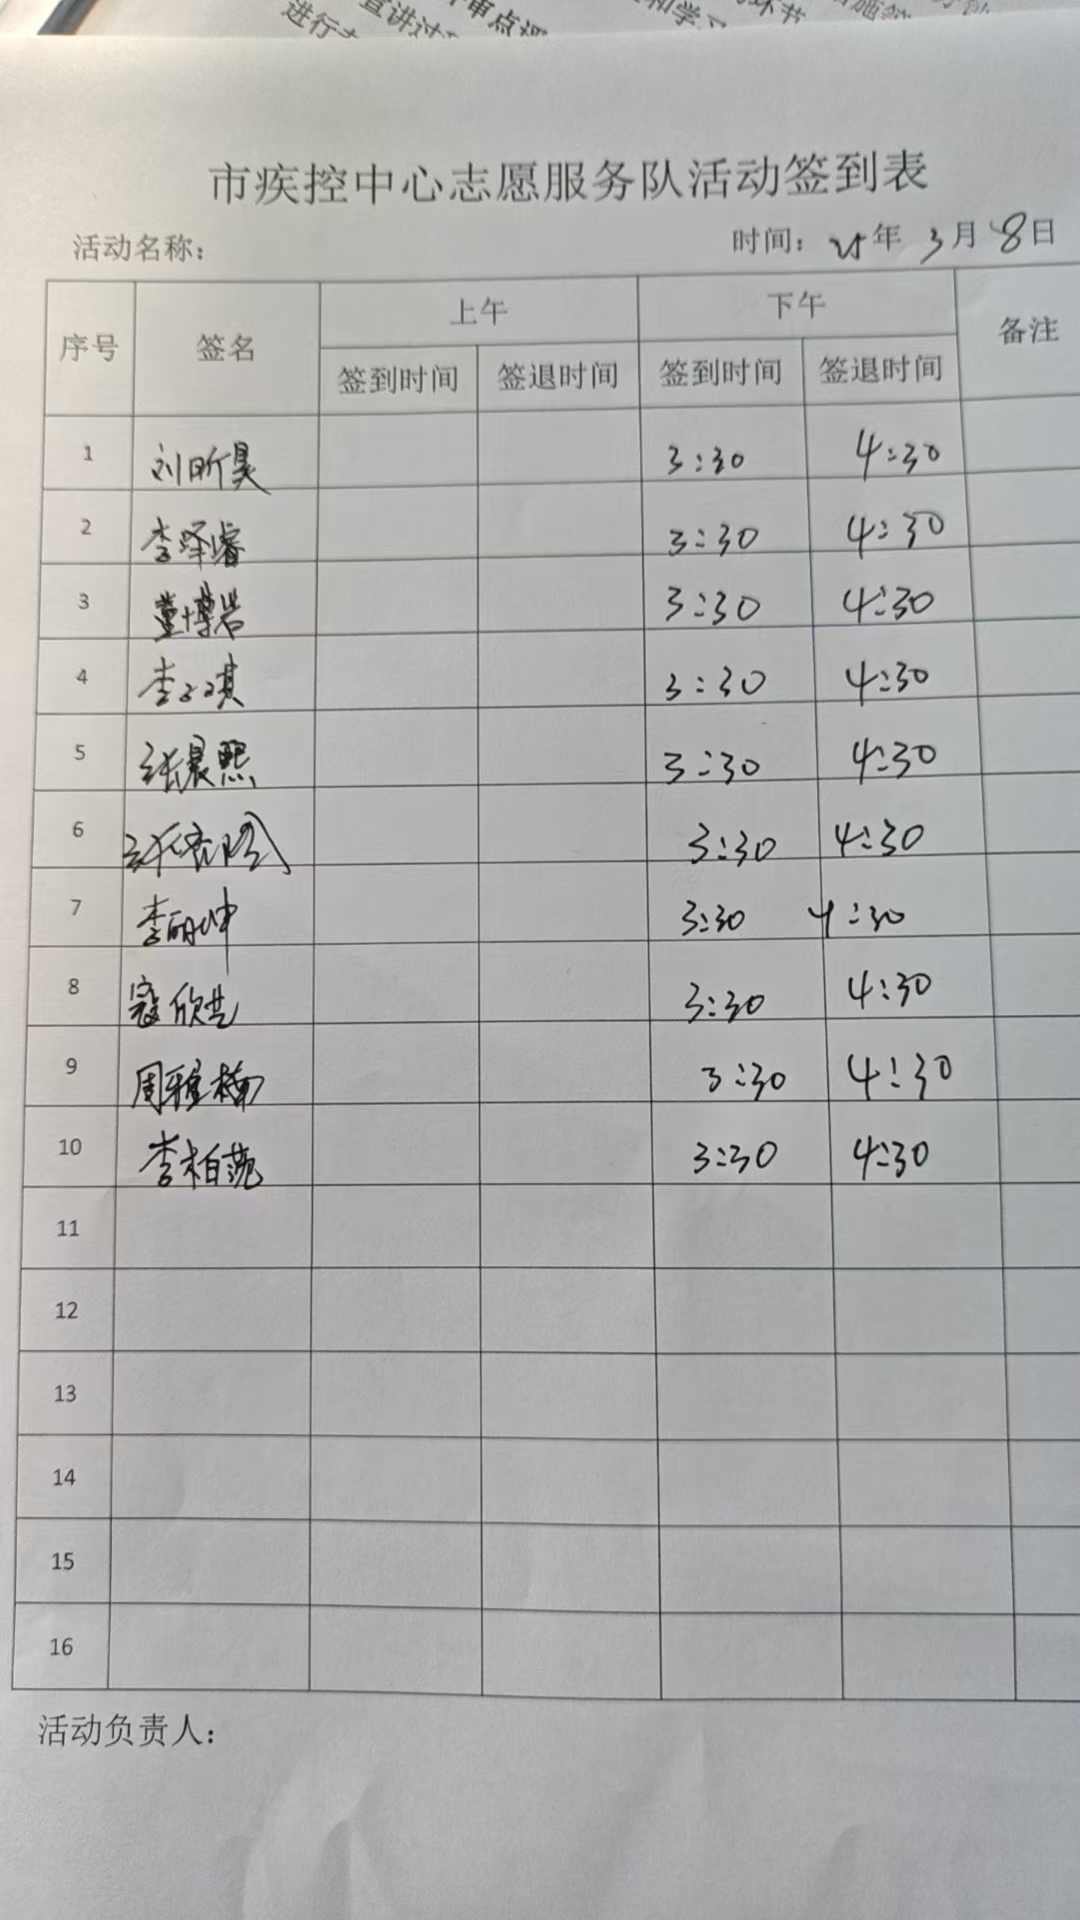 市疾控中心志愿服务队活动签到表
活动名称： 时间：25年3月8日
序号 签名 上午 下午 备注
签到时间 签退时间 签到时间 签退时间
1 刘昕昊 3:30 4:30
2 李泽睿 3:30 4:30
3 董博岩 3:30 4:30
4 3:30 4:30
5 张晨熙 3:30 4:30
6 3:30 4:30
7 李丽坤 3:30 4:30
8 寇欣艺 3:30 4:30
9 周雅楠 3:30 4:30
10 李柏菀 3:30 4:30
11
12
13
14
15
16
活动负责人：